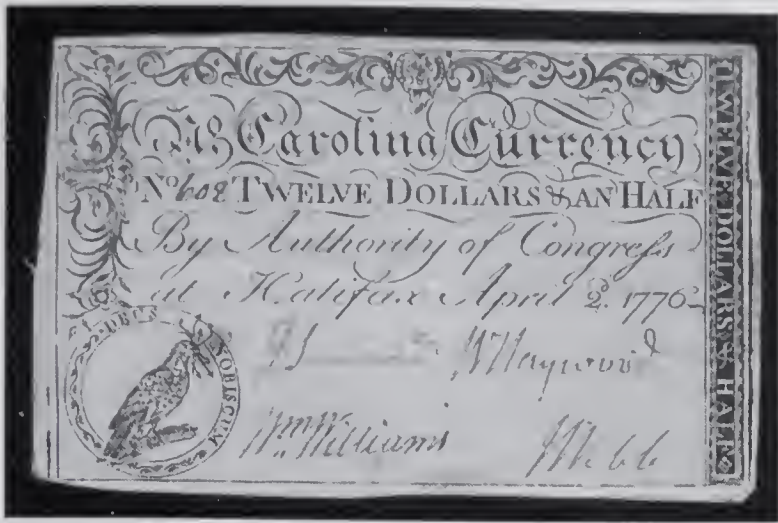 No Carolina Currency
No. 608 TWELVE DOLLARS & AN HALF
By Authority of Congress
at Halifax April 2d. 1776
DEUS NOBISCUM
W Haywood
Wm. Williams
J Webb
TWELVE DOLLARS & HALF